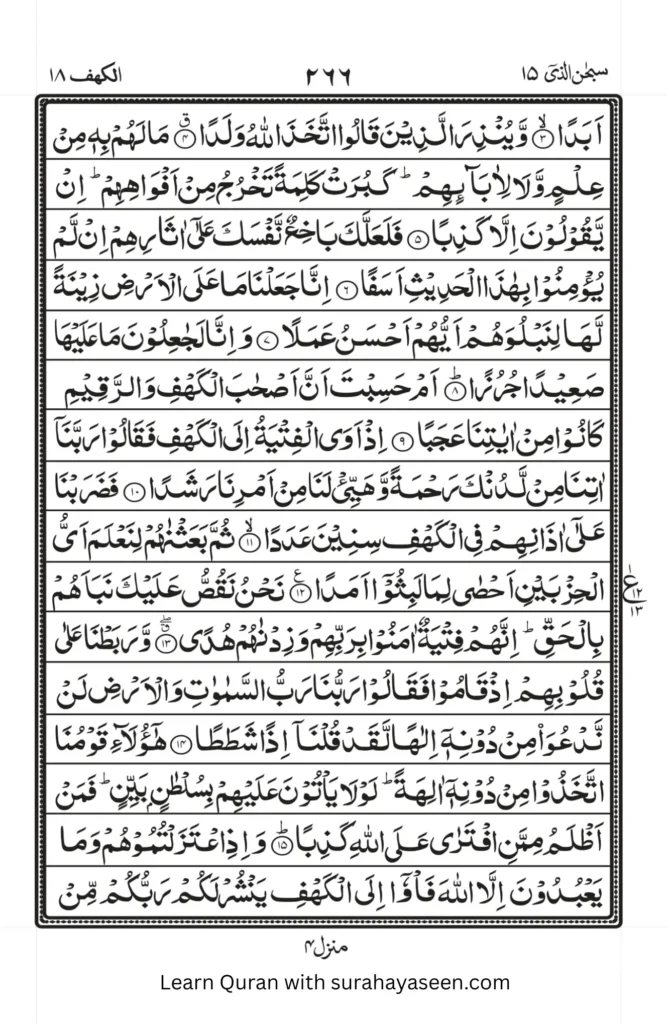 سبحٰن الذیٓ ۱۵
۲۶۶
الکهف ۱۸
اَبَدًا ۙ﴿۳﴾ وَّیُنْذِرَ الَّذِیْنَ قَالُوا اتَّخَذَ اللّٰهُ وَلَدًا ۗق﴿۴﴾ مَا لَهُمْ بِهٖ مِنْ
عِلْمٍ وَّلَا لِاٰبَآىِٕهِمْ ؕ كَبُرَتْ كَلِمَةً تَخْرُجُ مِنْ اَفْوَاهِهِمْ ؕ اِنْ
یَّقُوْلُوْنَ اِلَّا كَذِبًا ﴿۵﴾ فَلَعَلَّكَ بَاخِعٌ نَّفْسَكَ عَلٰۤی اٰثَارِهِمْ اِنْ لَّمْ
یُؤْمِنُوْا بِهٰذَا الْحَدِیْثِ اَسَفًا ﴿۶﴾ اِنَّا جَعَلْنَا مَا عَلَی الْاَرْضِ زِیْنَةً
لَّهَا لِنَبْلُوَهُمْ اَیُّهُمْ اَحْسَنُ عَمَلًا ﴿۷﴾ وَ اِنَّا لَجٰعِلُوْنَ مَا عَلَیْهَا
صَعِیْدًا جُرُزًا ؕ﴿۸﴾ اَمْ حَسِبْتَ اَنَّ اَصْحٰبَ الْكَهْفِ وَ الرَّقِیْمِ
كَانُوْا مِنْ اٰیٰتِنَا عَجَبًا ﴿۹﴾ اِذْ اَوَی الْفِتْیَةُ اِلَی الْكَهْفِ فَقَالُوْا رَبَّنَاۤ
اٰتِنَا مِنْ لَّدُنْكَ رَحْمَةً وَّ هَیِّئْ لَنَا مِنْ اَمْرِنَا رَشَدًا ﴿۱۰﴾ فَضَرَبْنَا
عَلٰۤی اٰذَانِهِمْ فِی الْكَهْفِ سِنِیْنَ عَدَدًا ۙ﴿۱۱﴾ ثُمَّ بَعَثْنٰهُمْ لِنَعْلَمَ اَیُّ
الْحِزْبَیْنِ اَحْصٰی لِمَا لَبِثُوْۤا اَمَدًا ﴿۱۲﴾ع نَحْنُ نَقُصُّ عَلَیْكَ نَبَاَهُمْ
ع ۱۲ ۱۳
بِالْحَقِّ ؕ اِنَّهُمْ فِتْیَةٌ اٰمَنُوْا بِرَبِّهِمْ وَ زِدْنٰهُمْ هُدًی ۗۖ﴿۱۳﴾ وَّ رَبَطْنَا عَلٰی
قُلُوْبِهِمْ اِذْ قَامُوْا فَقَالُوْا رَبُّنَا رَبُّ السَّمٰوٰتِ وَ الْاَرْضِ لَنْ
نَّدْعُوَاۡ مِنْ دُوْنِهٖۤ اِلٰهًا لَّقَدْ قُلْنَاۤ اِذًا شَطَطًا ﴿۱۴﴾ هٰۤؤُلَآءِ قَوْمُنَا
اتَّخَذُوْا مِنْ دُوْنِهٖۤ اٰلِهَةً ؕ لَوْ لَا یَاْتُوْنَ عَلَیْهِمْ بِسُلْطٰنٍۭ بَیِّنٍ ؕ فَمَنْ
اَظْلَمُ مِمَّنِ افْتَرٰی عَلَی اللّٰهِ كَذِبًا ؕ﴿۱۵﴾ وَ اِذِ اعْتَزَلْتُمُوْهُمْ وَ مَا
یَعْبُدُوْنَ اِلَّا اللّٰهَ فَاْوٗۤا اِلَی الْكَهْفِ یَنْشُرْ لَكُمْ رَبُّكُمْ مِّنْ
منزل ۴
Learn Quran with surahayaseen.com